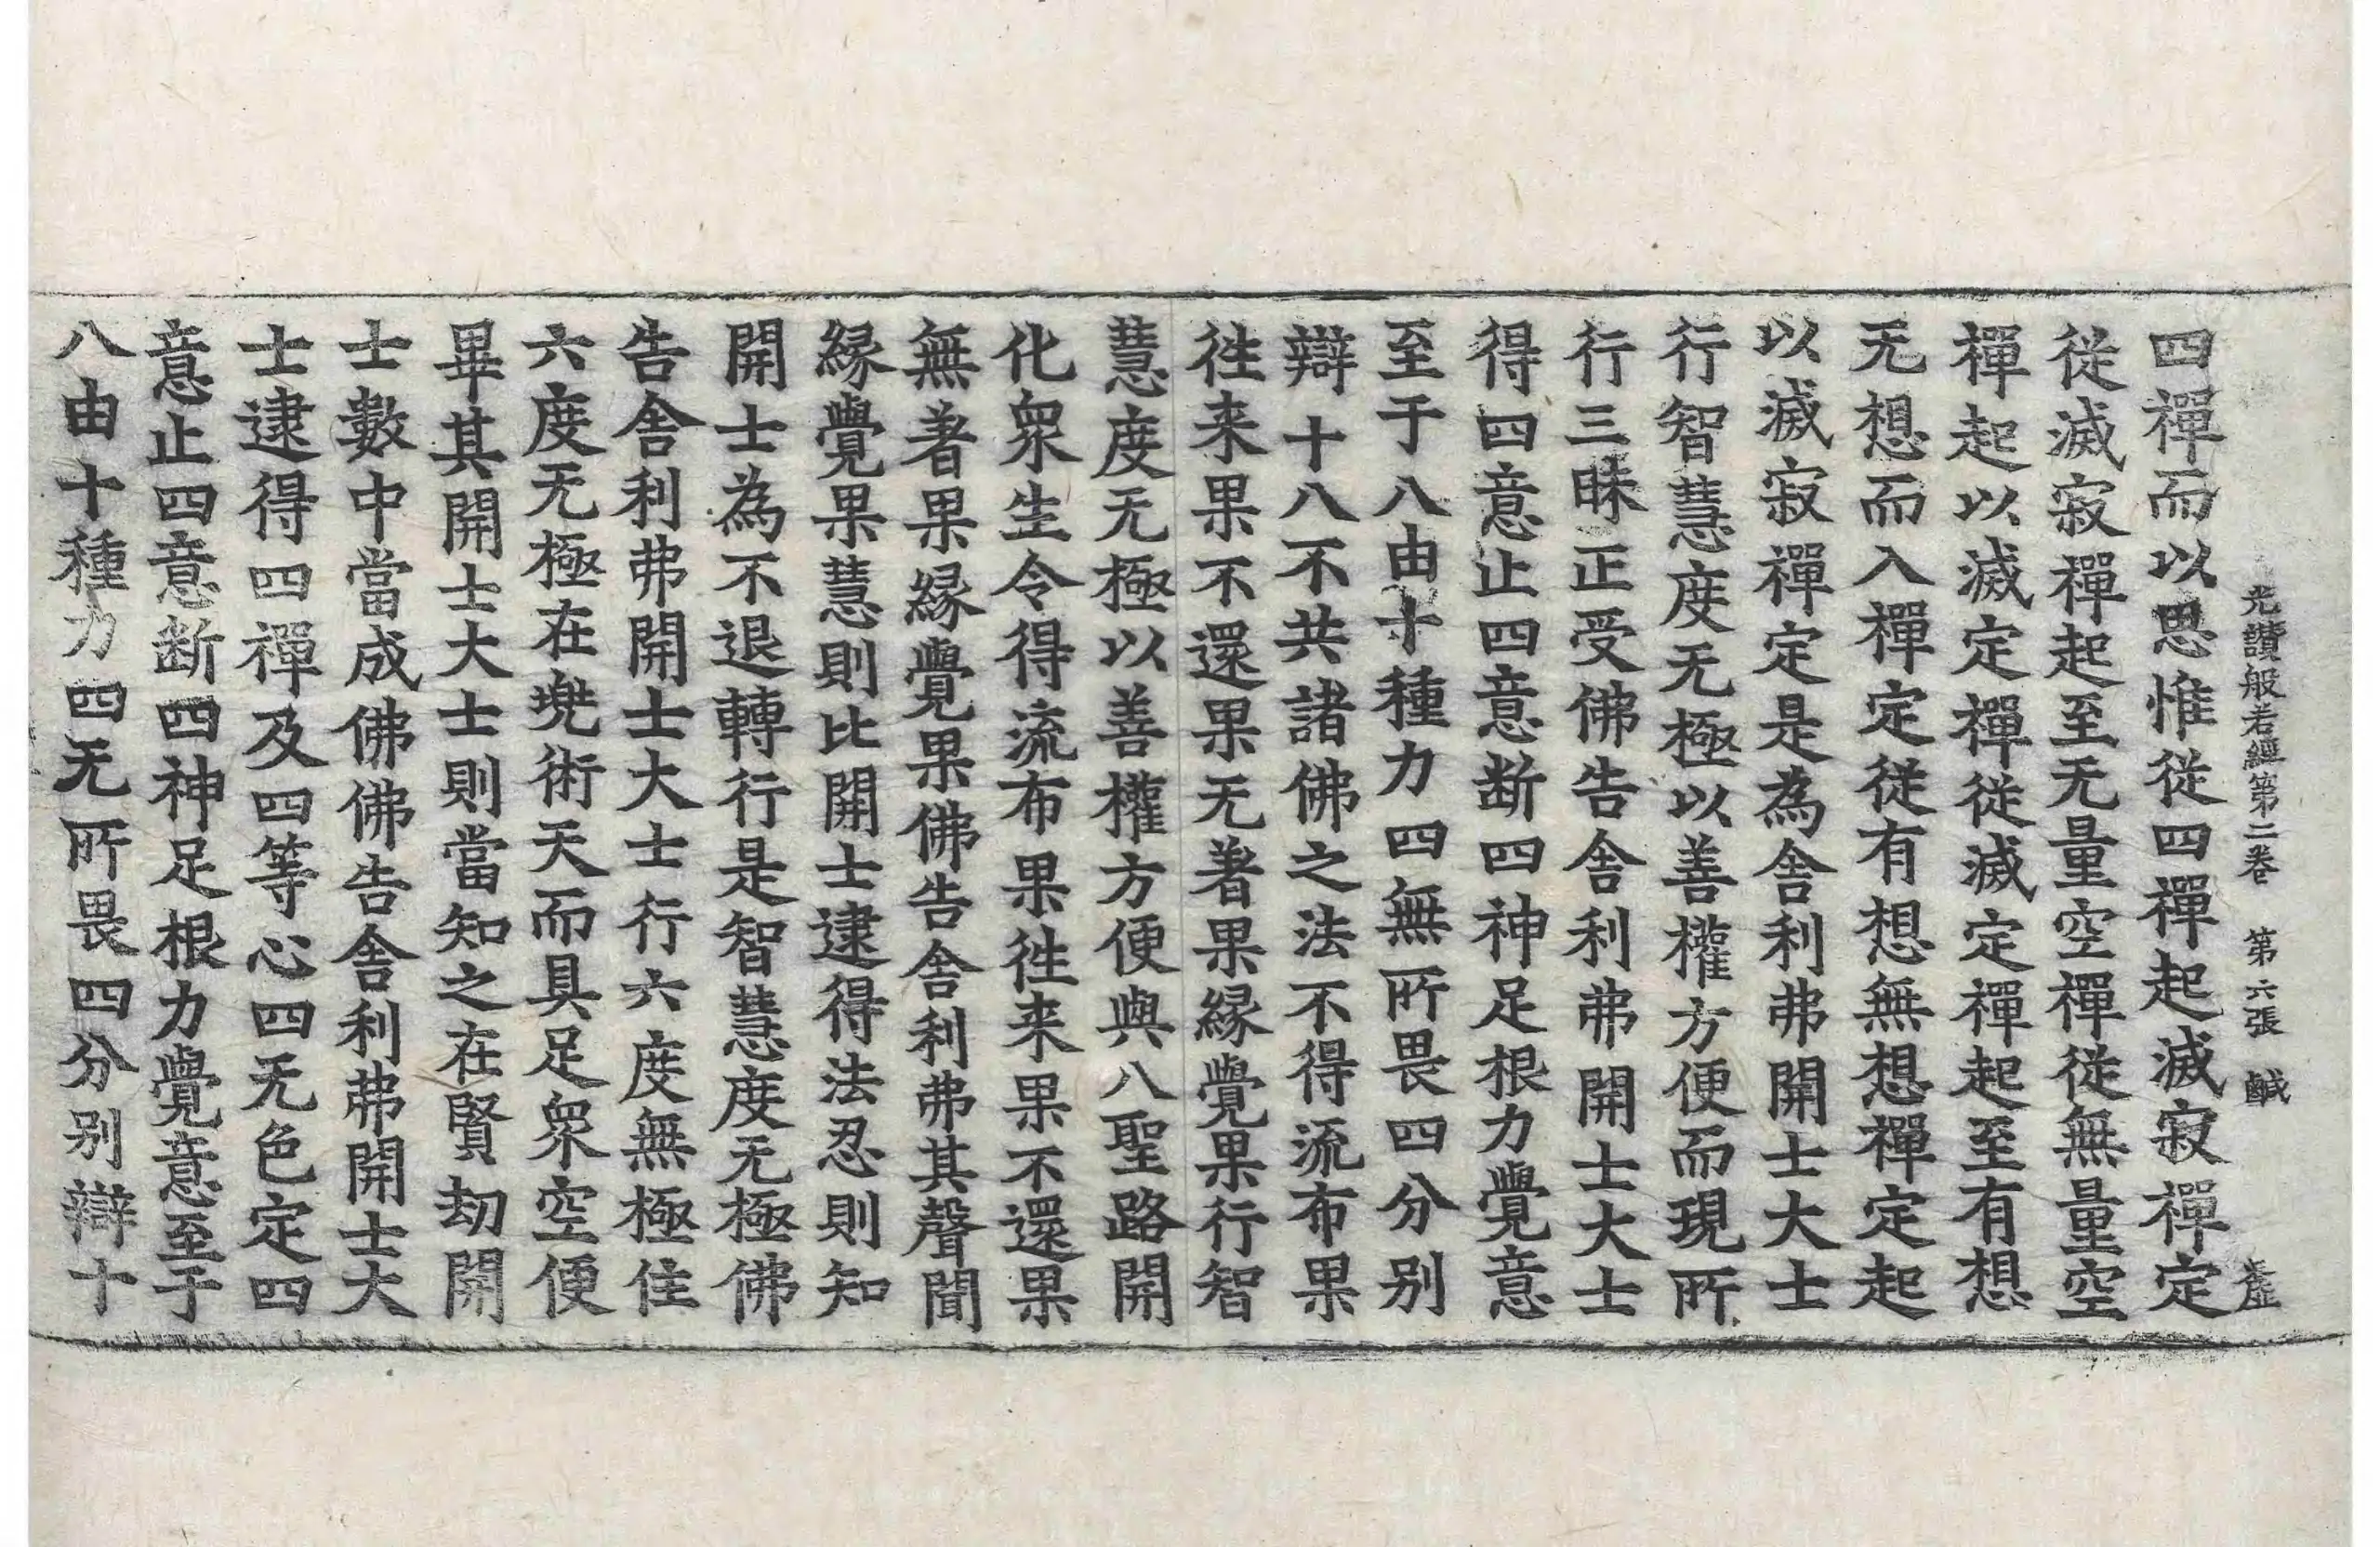 光讃般若經第二卷　第六張　鹹
四禪而以思惟從四禪起滅寂禪定
從滅寂禪起至无量空禪從無量空
禪起以滅定禪從滅定禪起至有想
无想而入禪定從有想無想禪定起
以滅寂禪定是為舎利弗開士大士
行智慧度无極以善權方便而現所
行三昧正受佛告舎利弗開士大士
得四意止四意断四神足根力覺意
至于八由十種力四無所畏四分别
辯十八不共諸佛之法不得流布果
徃来果不還果无著果縁覺果行智
慧度无極以善權方便與八聖路開
化衆生令得流布果徃来果不還果
無著果縁覺果佛告舎利弗其聲聞
縁覺果慧則比開士逮得法忍則知
開士為不退轉行是智慧度无極佛
告舎利弗開士大士行六度無極住
六度无極在兠術天而具足衆空便
畢其開士大士則當知之在賢劫開
士數中當成佛佛告舎利弗開士大
士逮得四禪及四等心四无色定四
意止四意断四神足根力覺意至于
八由十種力四无所畏四分别辯十